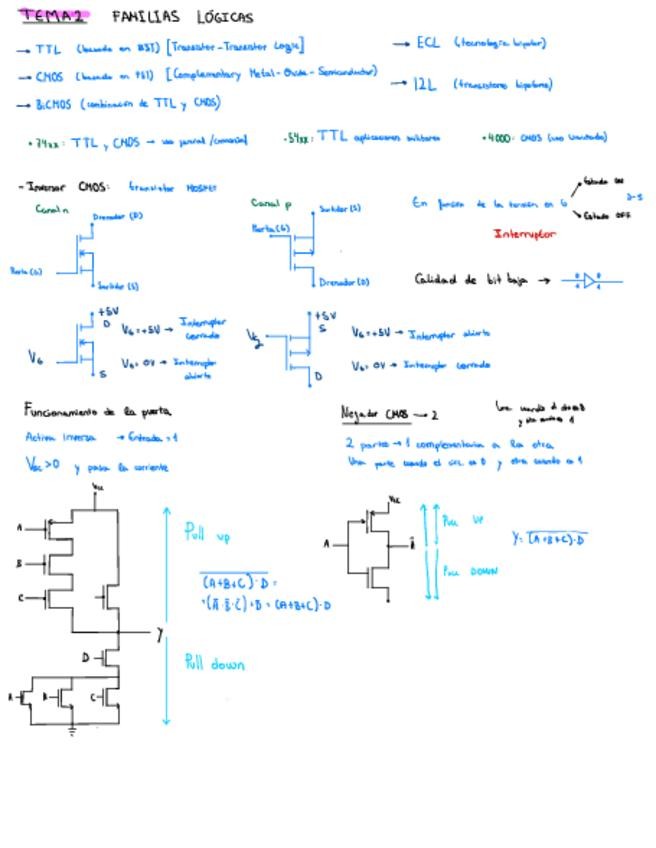 TEMA 2 FAMILIAS LÓGICAS
→ TTL (basada en BJT) [Transistor-Transistor Logic]
→ ECL (tecnología bipolar)
→ CMOS (basada en FET) [Complementary Metal-Oxide-Semiconductor)
→ I2L (transistores bipolares)
→ BiCMOS (combinación de TTL y CMOS)
• 74xx: TTL y CMOS → uso general /comercial
• 54xx: TTL aplicaciones militares
• 4000: CMOS (uso limitado)
- Inversor CMOS: transistor MOSFET
Canal n
Drenador (D)
Puerta (G)
Surtidor (S)
Canal p
Surtidor (S)
Puerta (G)
Drenador (D)
En función de la tensión en G
Estado ON
Estado OFF
D-S
Interruptor
Calidad de bit baja →
+5V
D
VG
S
VG=+5V → Interruptor cerrado
VG= 0V → Interruptor abierto
+5V
S
D
VG=+5V → Interruptor abierto
VG= 0V → Interruptor cerrado
Funcionamiento de la puerta
Activa inversa → Entrada=1
>0 y pasa la corriente
Negador CMOS → 2
2 partes → 1 complementaria a la otra
Una parte cuando el circ. es 0 y otra cuando es 1
Vcc
A
B
C
Y
D
A
B
C
Pull up
(A+B+C)·D =
Pull down
Vcc
A
Ā
Pull UP
Pull DOWN
Y= (A+B+C)·D